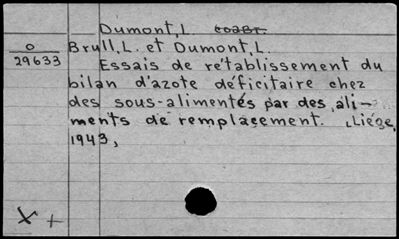 Dumont, L. coabr.
O Brull, L. et Dumont, L.
29633 Essais de rétablissement du
bilan d'azote déficitaire chez
des sous-alimentés par des ali-
ments de remplacement. Liége,
1943,
X +